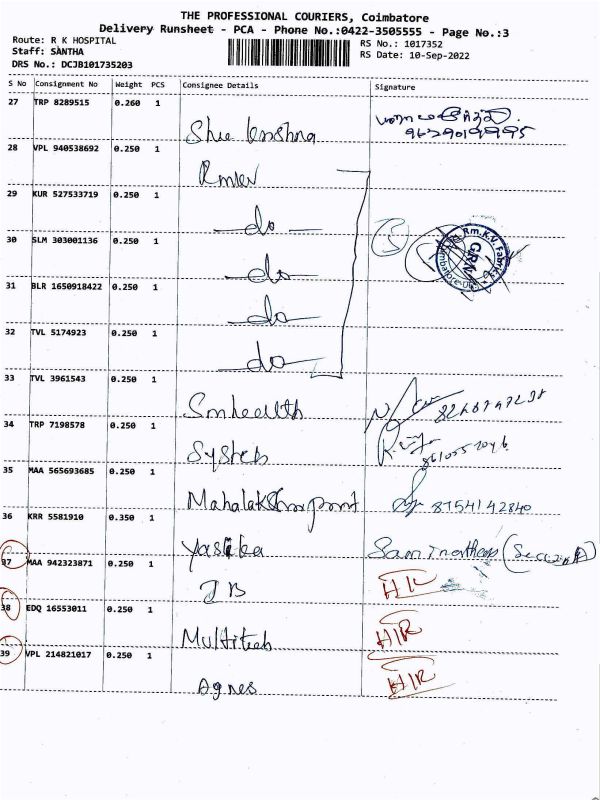 THE PROFESSIONAL COURIERS, Coimbatore
Delivery Runsheet - PCA - Phone No.:0422-3505555 - Page No.:3
Route: R K HOSPITAL
RS No.: 1017352
Staff: SANTHA
RS Date: 10-Sep-2022
DRS No.: DCJB101735203
S No Consignment No Weight PCS Consignee Details Signature
27 TRP 8289515 0.260 1
9629019995
Shree krishna
28 VPL 940538692 0.250 1
Rmkv
29 KUR 527533719 0.250 1
do
30 SLM 303001136 0.250 1
Rm.K.V. Fabrics
GRN
do
31 BLR 1650918422 0.250 1
do
32 TVL 5174923 0.250 1
do
33 TVL 3961543 0.250 1
Smhealth
34 TRP 7198578 0.250 1
Systeb
35 MAA 565693685 0.250 1
Mahalakshmi print 8754142840
36 KRR 5581910 0.350 1
Yasika Saminathan
37 MAA 942323871 0.250 1
JB HIR
38 EDQ 16553011 0.250 1
Multitech HIR
39 VPL 214821017 0.250 1
Agnes HIR